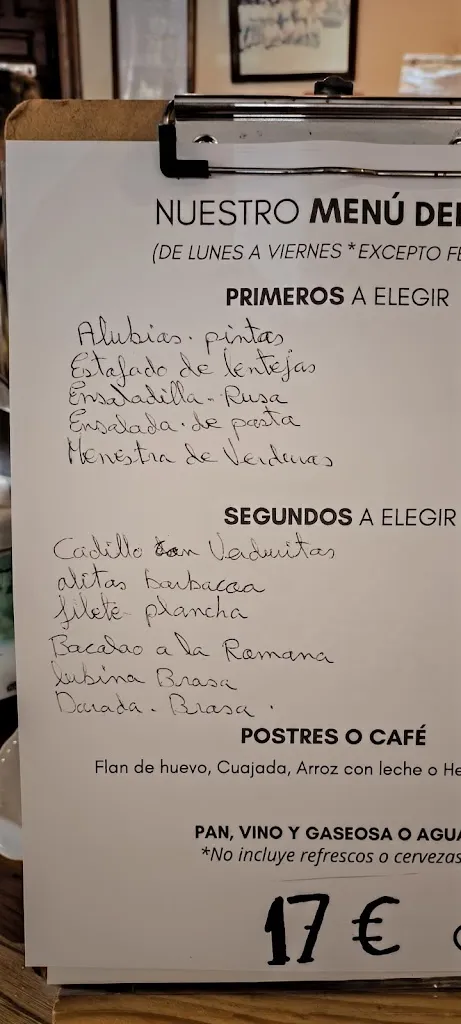 NUESTRO MENÚ DEL
(DE LUNES A VIERNES *EXCEPTO FE
PRIMEROS A ELEGIR
Alubias. pintas
Estafado de lentejas
Ensaladilla. Rusa
Ensalada. de pasta
Menestra de Verduras
SEGUNDOS A ELEGIR
Cadillo con Verduritas
alitas barbacoa
filete plancha
Bacalao a la Romana
lubina Brasa
Dorada. Brasa.
POSTRES O CAFÉ
Flan de huevo, Cuajada, Arroz con leche o He
PAN, VINO Y GASEOSA O AGUA
*No incluye refrescos o cervezas
17 €